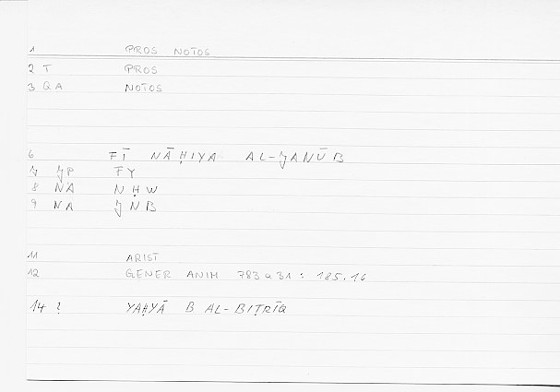 1 PROS NOTOS
2 T PROS
3 QA NOTOS
6 FĪ NĀḤIYA AL-ǦANŪB
7 ǦP FY
8 NA NḤW
9 NA ǦNB
11 ARIST
12 GENER ANIM 783a31 : 185.16
14 ? YAḤYĀ B AL-BIṬRĪQ